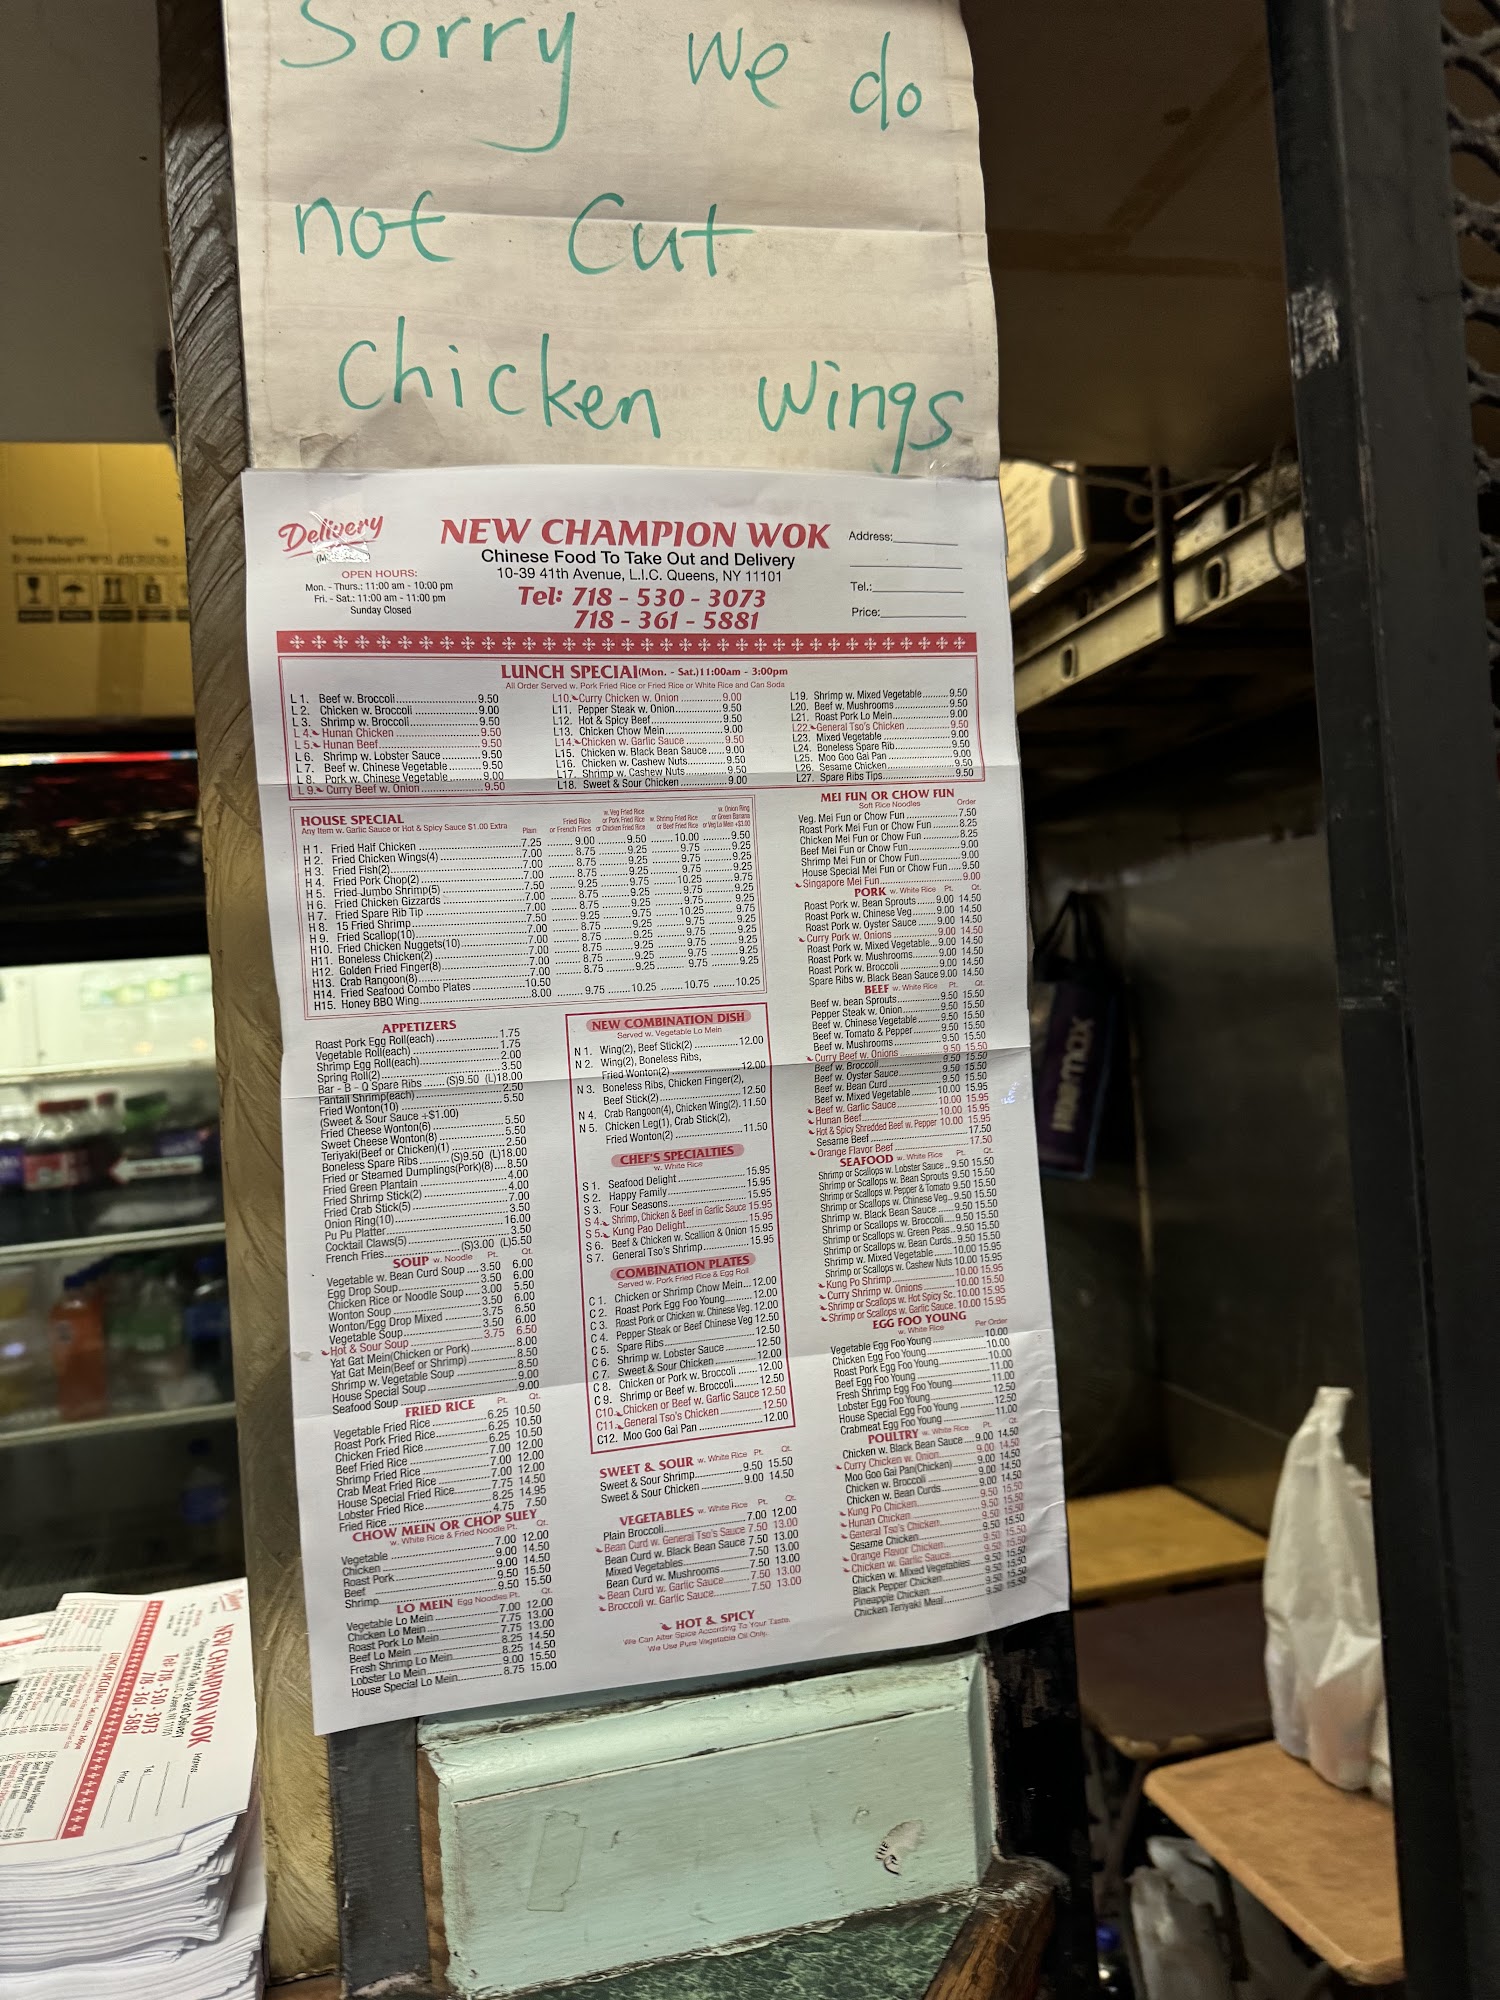 Sorry we do
not Cut
Chicken wings
Delivery
OPEN HOURS:
Mon. - Thurs.: 11:00 am - 10:00 pm
Fri. - Sat.: 11:00 am - 11:00 pm
Sunday Closed
NEW CHAMPION WOK
Chinese Food To Take Out and Delivery
10-39 41th Avenue, L.I.C. Queens, NY 11101
Tel: 718 - 530 - 3073
718 - 361 - 5881
Address:
Tel.:
Price:
LUNCH SPECIAL (Mon. - Sat.) 11:00am - 3:00pm
All Order Served w. Pork Fried Rice or Fried Rice or White Rice and Can Soda
L 1. Beef w. Broccoli 9.50
L 2. Chicken w. Broccoli 9.00
L 3. Shrimp w. Broccoli 9.50
L 4. Hunan Chicken 9.50
L 5. Hunan Beef 9.50
L 6. Shrimp w. Lobster Sauce 9.50
L 7. Beef w. Chinese Vegetable 9.50
L 8. Pork w. Chinese Vegetable 9.00
L 9. Curry Beef w. Onion 9.50
L10. Curry Chicken w. Onion 9.00
L11. Pepper Steak w. Onion 9.50
L12. Hot & Spicy Beef 9.50
L13. Chicken Chow Mein 9.00
L14. Chicken w. Garlic Sauce 9.50
L15. Chicken w. Black Bean Sauce 9.00
L16. Chicken w. Cashew Nuts 9.50
L17. Shrimp w. Cashew Nuts 9.50
L18. Sweet & Sour Chicken 9.00
L19. Shrimp w. Mixed Vegetable 9.50
L20. Beef w. Mushrooms 9.50
L21. Roast Pork Lo Mein 9.00
L22. General Tso's Chicken 9.50
L23. Mixed Vegetable 9.00
L24. Boneless Spare Rib 9.50
L25. Moo Goo Gai Pan 9.00
L26. Sesame Chicken 9.50
L27. Spare Ribs Tips 9.50
HOUSE SPECIAL
Any Item w. Garlic Sauce or Hot & Spicy Sauce $1.00 Extra
Plain
Fried Rice or French Fries
w. Veg Fried Rice or Pork Fried Rice or Chicken Fried Rice
w. Shrimp Fried Rice or Beef Fried Rice
w. Onion Ring or Green Banana or Veg Lo Mein +$3.00
H 1. Fried Half Chicken 7.25 9.00 9.50 10.00 9.50
H 2. Fried Chicken Wings(4) 7.00 8.75 9.25 9.75 9.25
H 3. Fried Fish(2) 7.00 8.75 9.25 9.75 9.25
H 4. Fried Pork Chop(2) 7.00 8.75 9.25 9.75 9.25
H 5. Fried Jumbo Shrimp(5) 7.50 9.25 9.75 10.25 9.75
H 6. Fried Chicken Gizzards 7.00 8.75 9.25 9.75 9.25
H 7. Fried Spare Rib Tip 7.00 8.75 9.25 9.75 9.25
H 8. 15 Fried Shrimp 7.50 9.25 9.75 10.25 9.75
H 9. Fried Scallop(10) 7.00 8.75 9.25 9.75 9.25
H10. Fried Chicken Nuggets(10) 7.00 8.75 9.25 9.75 9.25
H11. Boneless Chicken(2) 7.00 8.75 9.25 9.75 9.25
H12. Golden Fried Finger(8) 7.00 8.75 9.25 9.75 9.25
H13. Crab Rangoon(8) 7.00 8.75 9.25 9.75 9.25
H14. Fried Seafood Combo Plates 10.50
H15. Honey BBQ Wing 8.00 9.75 10.25 10.75 10.25
APPETIZERS
Roast Pork Egg Roll(each) 1.75
Vegetable Roll(each) 1.75
Shrimp Egg Roll(each) 2.00
Spring Roll(2) 3.50
Bar - B - Q Spare Ribs (S)9.50 (L)18.00
Fantail Shrimp(each) 2.50
Fried Wonton(10) 5.50
(Sweet & Sour Sauce +$1.00)
Fried Cheese Wonton(6) 5.50
Sweet Cheese Wonton(8) 5.50
Teriyaki(Beef or Chicken)(1) 2.50
Boneless Spare Ribs (S)9.50 (L)18.00
Fried or Steamed Dumplings(Pork)(8) 8.50
Fried Green Plantain 4.00
Fried Shrimp Stick(2) 4.00
Fried Crab Stick(5) 7.00
Onion Ring(10) 3.50
Pu Pu Platter 16.00
Cocktail Claws(5) 3.50
French Fries (S)3.00 (L)5.50
SOUP w. Noodle Pt. Qt.
Vegetable w. Bean Curd Soup 3.50 6.00
Egg Drop Soup 3.50 6.00
Chicken Rice or Noodle Soup 3.00 5.50
Wonton Soup 3.50 6.00
Wonton/Egg Drop Mixed 3.75 6.50
Vegetable Soup 3.50 6.00
Hot & Sour Soup 3.75 6.50
Yat Gat Mein(Chicken or Pork) 8.00
Yat Gat Mein(Beef or Shrimp) 8.50
Shrimp w. Vegetable Soup 8.50
House Special Soup 9.00
Seafood Soup 9.00
FRIED RICE Pt. Qt.
Vegetable Fried Rice 6.25 10.50
Roast Pork Fried Rice 6.25 10.50
Chicken Fried Rice 6.25 10.50
Beef Fried Rice 7.00 12.00
Shrimp Fried Rice 7.00 12.00
Crab Meat Fried Rice 7.00 12.00
House Special Fried Rice 7.75 14.50
Lobster Fried Rice 8.25 14.95
Fried Rice 4.75 7.50
CHOW MEIN OR CHOP SUEY
w. White Rice & Fried Noodle Pt. Qt.
Vegetable 7.00 12.00
Chicken 9.00 14.50
Roast Pork 9.00 14.50
Beef 9.50 15.50
Shrimp 9.50 15.50
LO MEIN Egg Noodles Pt. Qt.
Vegetable Lo Mein 7.00 12.00
Chicken Lo Mein 7.75 13.00
Roast Pork Lo Mein 7.75 13.00
Beef Lo Mein 8.25 14.50
Fresh Shrimp Lo Mein 8.25 14.50
Lobster Lo Mein 9.00 15.50
House Special Lo Mein 8.75 15.00
NEW COMBINATION DISH
Served w. Vegetable Lo Mein
N 1. Wing(2), Beef Stick(2) 12.00
N 2. Wing(2), Boneless Ribs,
Fried Wonton(2) 12.00
N 3. Boneless Ribs, Chicken Finger(2),
Beef Stick(2) 12.50
N 4. Crab Rangoon(4), Chicken Wing(2) 11.50
N 5. Chicken Leg(1), Crab Stick(2),
Fried Wonton(2) 11.50
CHEF'S SPECIALTIES
w. White Rice
S 1. Seafood Delight 15.95
S 2. Happy Family 15.95
S 3. Four Seasons 15.95
S 4. Shrimp, Chicken & Beef in Garlic Sauce 15.95
S 5. Kung Pao Delight 15.95
S 6. Beef & Chicken w. Scallion & Onion 15.95
S 7. General Tso's Shrimp 15.95
COMBINATION PLATES
Served w. Pork Fried Rice & Egg Roll
C 1. Chicken or Shrimp Chow Mein 12.00
C 2. Roast Pork Egg Foo Young 12.00
C 3. Roast Pork or Chicken w. Chinese Veg. 12.00
C 4. Pepper Steak or Beef Chinese Veg 12.50
C 5. Spare Ribs 12.50
C 6. Shrimp w. Lobster Sauce 12.50
C 7. Sweet & Sour Chicken 12.00
C 8. Chicken or Pork w. Broccoli 12.00
C 9. Shrimp or Beef w. Broccoli 12.50
C10. Chicken or Beef w. Garlic Sauce 12.50
C11. General Tso's Chicken 12.50
C12. Moo Goo Gai Pan 12.00
SWEET & SOUR w. White Rice Pt. Qt.
Sweet & Sour Shrimp 9.50 15.50
Sweet & Sour Chicken 9.00 14.50
VEGETABLES w. White Rice Pt. Qt.
Plain Broccoli 7.00 12.00
Bean Curd w. General Tso's Sauce 7.50 13.00
Bean Curd w. Black Bean Sauce 7.50 13.00
Mixed Vegetables 7.50 13.00
Bean Curd w. Mushrooms 7.50 13.00
Bean Curd w. Garlic Sauce 7.50 13.00
Broccoli w. Garlic Sauce 7.50 13.00
HOT & SPICY
We Can Alter Spice According To Your Taste.
We Use Pure Vegetable Oil Only.
MEI FUN OR CHOW FUN
Soft Rice Noodles Order
Veg. Mei Fun or Chow Fun 7.50
Roast Pork Mei Fun or Chow Fun 8.25
Chicken Mei Fun or Chow Fun 8.25
Beef Mei Fun or Chow Fun 9.00
Shrimp Mei Fun or Chow Fun 9.00
House Special Mei Fun or Chow Fun 9.50
Singapore Mei Fun 9.00
PORK w. White Rice Pt. Qt.
Roast Pork w. Bean Sprouts 9.00 14.50
Roast Pork w. Chinese Veg 9.00 14.50
Roast Pork w. Oyster Sauce 9.00 14.50
Curry Pork w. Onions 9.00 14.50
Roast Pork w. Mixed Vegetable 9.00 14.50
Roast Pork w. Mushrooms 9.00 14.50
Roast Pork w. Broccoli 9.00 14.50
Spare Ribs w. Black Bean Sauce 9.00 14.50
BEEF w. White Rice Pt. Qt.
Beef w. bean Sprouts 9.50 15.50
Pepper Steak w. Onion 9.50 15.50
Beef w. Chinese Vegetable 9.50 15.50
Beef w. Tomato & Pepper 9.50 15.50
Beef w. Mushrooms 9.50 15.50
Curry Beef w. Onions 9.50 15.50
Beef w. Broccoli 9.50 15.50
Beef w. Oyster Sauce 9.50 15.50
Beef w. Bean Curd 9.50 15.50
Beef w. Mixed Vegetable 10.00 15.95
Beef w. Garlic Sauce 10.00 15.95
Hunan Beef 10.00 15.95
Hot & Spicy Shredded Beef w. Pepper 10.00 15.95
Sesame Beef 17.50
Orange Flavor Beef 17.50
SEAFOOD w. White Rice Pt. Qt.
Shrimp or Scallops w. Lobster Sauce 9.50 15.50
Shrimp or Scallops w. Bean Sprouts 9.50 15.50
Shrimp or Scallops w. Pepper & Tomato 9.50 15.50
Shrimp or Scallops w. Chinese Veg 9.50 15.50
Shrimp w. Black Bean Sauce 9.50 15.50
Shrimp or Scallops w. Broccoli 9.50 15.50
Shrimp or Scallops w. Green Peas 9.50 15.50
Shrimp or Scallops w. Bean Curds 9.50 15.50
Shrimp w. Mixed Vegetable 10.00 15.95
Shrimp or Scallops w. Cashew Nuts 10.00 15.95
Kung Po Shrimp 10.00 15.95
Curry Shrimp w. Onions 10.00 15.50
Shrimp or Scallops w. Hot Spicy Sc. 10.00 15.95
Shrimp or Scallops w. Garlic Sauce 10.00 15.95
EGG FOO YOUNG
w. White Rice Per Order
Vegetable Egg Foo Young 10.00
Chicken Egg Foo Young 10.00
Roast Pork Egg Foo Young 10.00
Beef Egg Foo Young 11.00
Fresh Shrimp Egg Foo Young 11.00
Lobster Egg Foo Young 12.50
House Special Egg Foo Young 12.50
Crabmeat Egg Foo Young 11.00
POULTRY w. White Rice Pt. Qt.
Chicken w. Black Bean Sauce 9.00 14.50
Curry Chicken w. Onion 9.00 14.50
Moo Goo Gai Pan(Chicken) 9.00 14.50
Chicken w. Broccoli 9.00 14.50
Chicken w. Bean Curds 9.00 14.50
Kung Po Chicken 9.50 15.50
Hunan Chicken 9.50 15.50
General Tso's Chicken 9.50 15.50
Sesame Chicken 9.50 15.50
Orange Flavor Chicken 9.50 15.50
Chicken w. Garlic Sauce 9.50 15.50
Chicken w. Mixed Vegetables 9.50 15.50
Black Pepper Chicken 9.50 15.50
Pineapple Chicken 9.50 15.50
Chicken Teriyaki Meal 9.50 15.50
NEW CHAMPION WOK
Chinese Food To Take Out and Delivery
Tel: 718 - 530 - 3073
718 - 361 - 5881